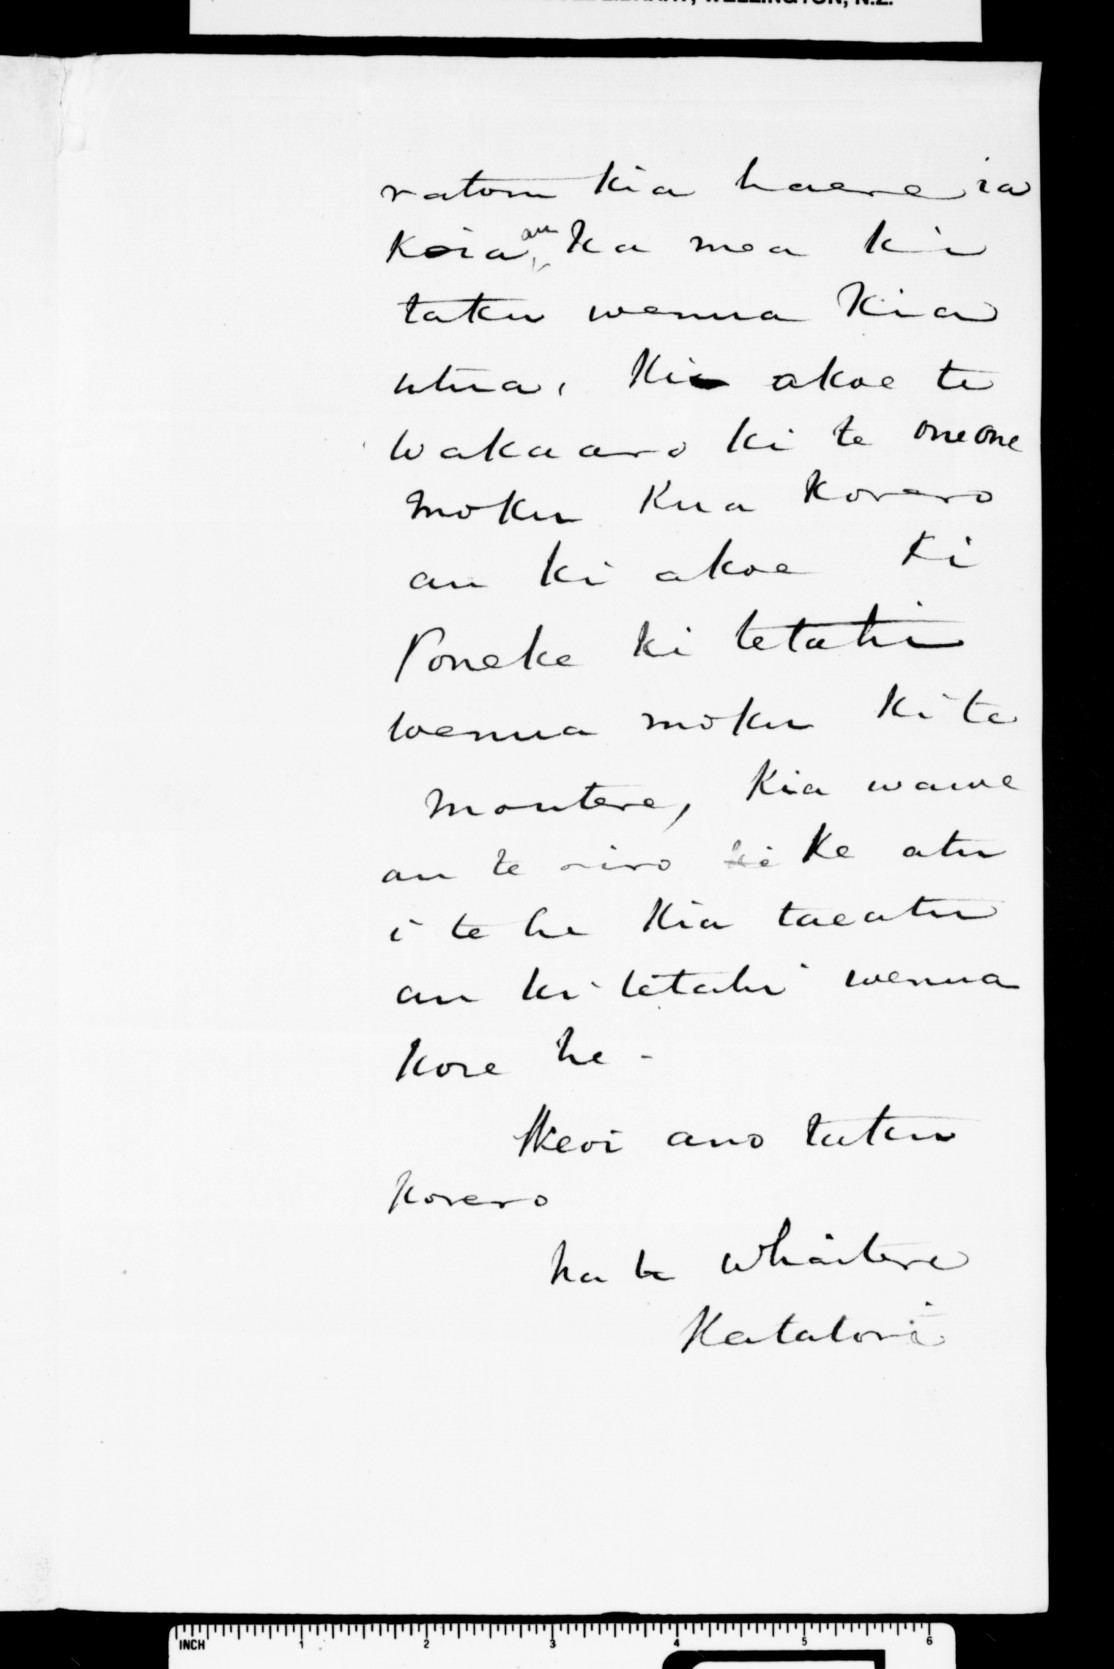 LIBRARY, WELLINGTON, N.Z.
ratou kia haere ia
Koia au ka mea ki
taku wenua Kia
utua, Kia akoe te
Wakaaro ki te oneone
moku Kua Korero
au ki akoe Ki
Poneke ki tetahi
wenua moku Ki te
Moutere, Kia wawe
au te riro ki Ke atu
i te he Kia taeatu
au ki tetahi wenua
Kore he -
Heoi ano taku
Korero
na te Whaitere
Katatori
INCH 1 2 3 4 5 6